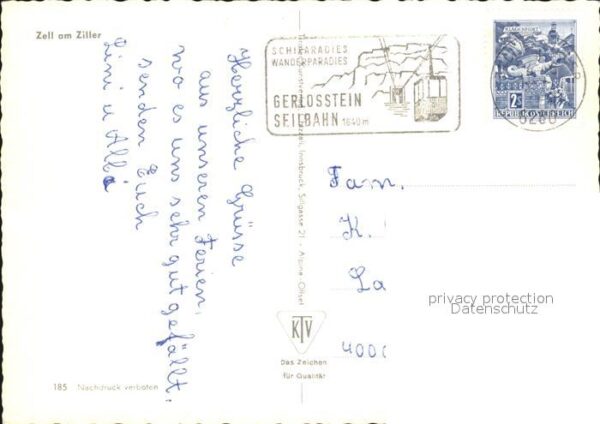 Zell am Ziller
Herzliche Grüsse
aus unseren Ferien,
wo es uns sehr gut gefällt.
senden Euch
Lini u Albi
SCHIPARADIES
WANDERPARADIES
GERLOSSTEIN
SEILBAHN 1640m
KLAGENFURT
2
REPUBLIK ÖSTERREICH
Innsbruck, Sillgasse 21 - Alpina-Offset
Fam.
K.
La
4000
privacy protection
Datenschutz
KTV
Das Zeichen
für Qualität
185 Nachdruck verboten